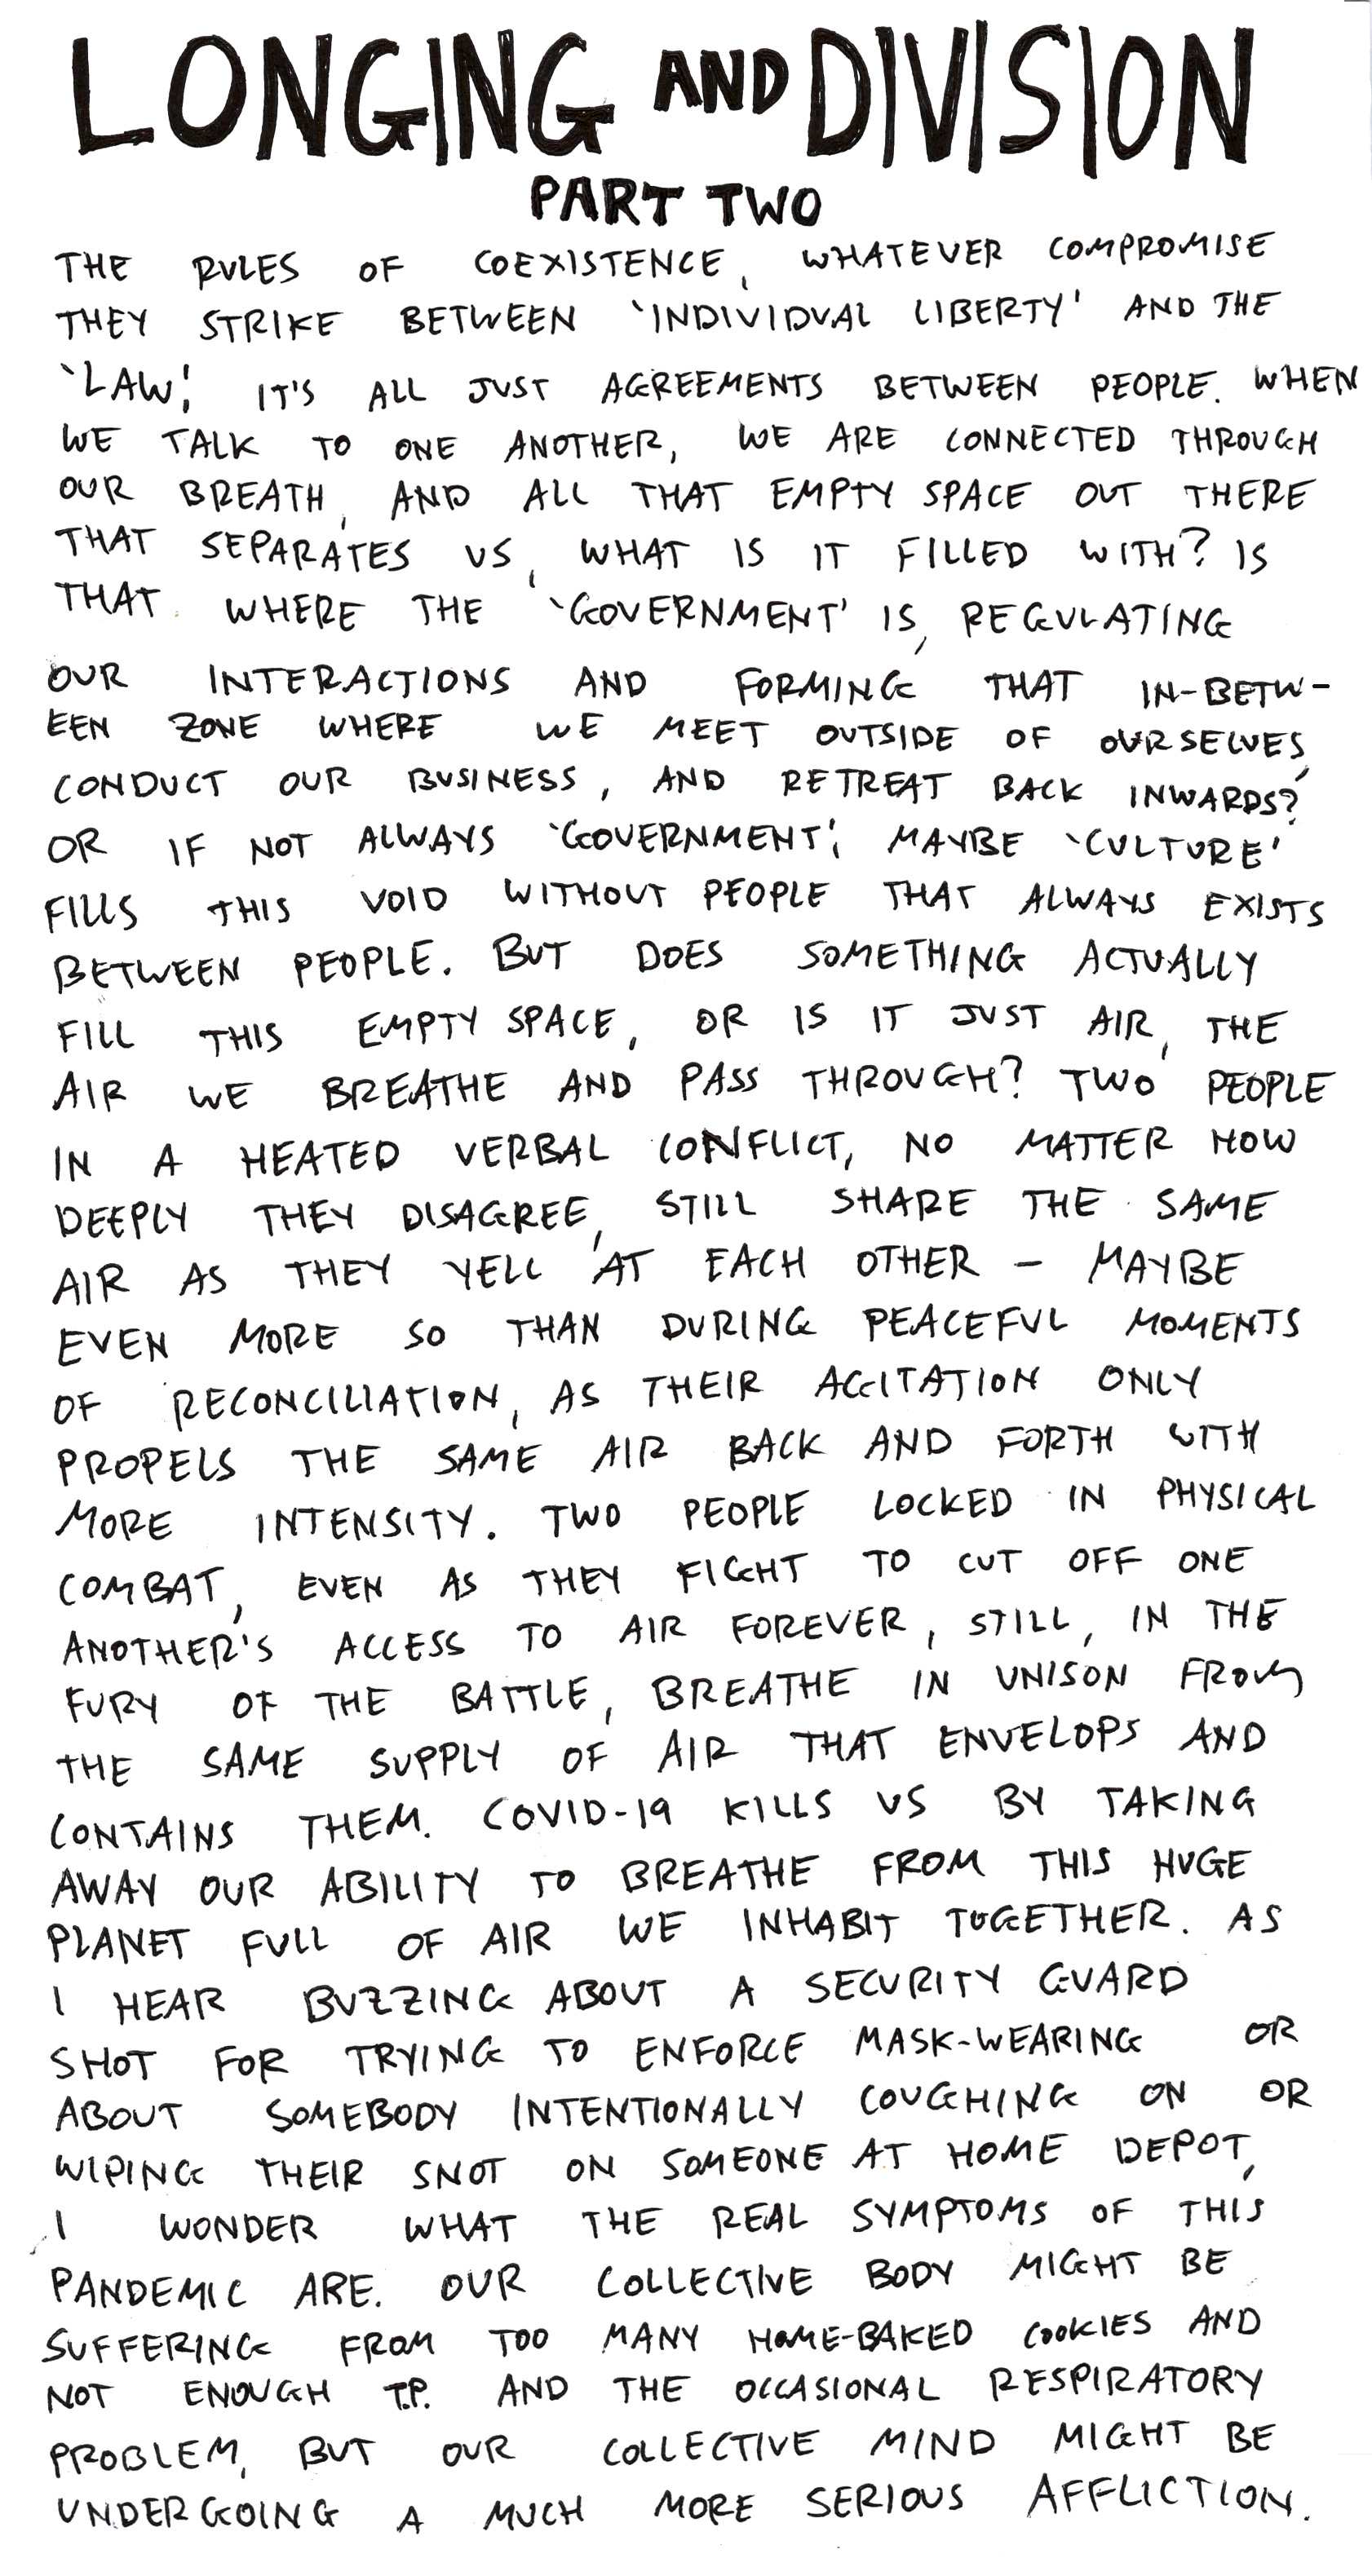 LONGING AND DIVISION
PART TWO
THE RULES OF COEXISTENCE, WHATEVER COMPROMISE
THEY STRIKE BETWEEN 'INDIVIDUAL LIBERTY' AND THE
'LAW', IT'S ALL JUST AGREEMENTS BETWEEN PEOPLE. WHEN
WE TALK TO ONE ANOTHER, WE ARE CONNECTED THROUGH
OUR BREATH, AND ALL THAT EMPTY SPACE OUT THERE
THAT SEPARATES US, WHAT IS IT FILLED WITH? IS
THAT WHERE THE 'GOVERNMENT' IS, REGULATING
OUR INTERACTIONS AND FORMING THAT IN-BETW-
EEN ZONE WHERE WE MEET OUTSIDE OF OURSELVES,
CONDUCT OUR BUSINESS, AND RETREAT BACK INWARDS?
OR IF NOT ALWAYS 'GOVERNMENT', MAYBE 'CULTURE'
FILLS THIS VOID WITHOUT PEOPLE THAT ALWAYS EXISTS
BETWEEN PEOPLE. BUT DOES SOMETHING ACTUALLY
FILL THIS EMPTY SPACE, OR IS IT JUST AIR, THE
AIR WE BREATHE AND PASS THROUGH? TWO PEOPLE
IN A HEATED VERBAL CONFLICT, NO MATTER HOW
DEEPLY THEY DISAGREE, STILL SHARE THE SAME
AIR AS THEY YELL AT EACH OTHER – MAYBE
EVEN MORE SO THAN DURING PEACEFUL MOMENTS
OF RECONCILIATION, AS THEIR AGITATION ONLY
PROPELS THE SAME AIR BACK AND FORTH WITH
MORE INTENSITY. TWO PEOPLE LOCKED IN PHYSICAL
COMBAT, EVEN AS THEY FIGHT TO CUT OFF ONE
ANOTHER'S ACCESS TO AIR FOREVER, STILL, IN THE
FURY OF THE BATTLE, BREATHE IN UNISON FROM
THE SAME SUPPLY OF AIR THAT ENVELOPS AND
CONTAINS THEM. COVID-19 KILLS US BY TAKING
AWAY OUR ABILITY TO BREATHE FROM THIS HUGE
PLANET FULL OF AIR WE INHABIT TOGETHER. AS
I HEAR BUZZING ABOUT A SECURITY GUARD
SHOT FOR TRYING TO ENFORCE MASK-WEARING OR
ABOUT SOMEBODY INTENTIONALLY COUGHING ON OR
WIPING THEIR SNOT ON SOMEONE AT HOME DEPOT,
I WONDER WHAT THE REAL SYMPTOMS OF THIS
PANDEMIC ARE. OUR COLLECTIVE BODY MIGHT BE
SUFFERING FROM TOO MANY HOME-BAKED COOKIES AND
NOT ENOUGH T.P. AND THE OCCASIONAL RESPIRATORY
PROBLEM, BUT OUR COLLECTIVE MIND MIGHT BE
UNDERGOING A MUCH MORE SERIOUS AFFLICTION.